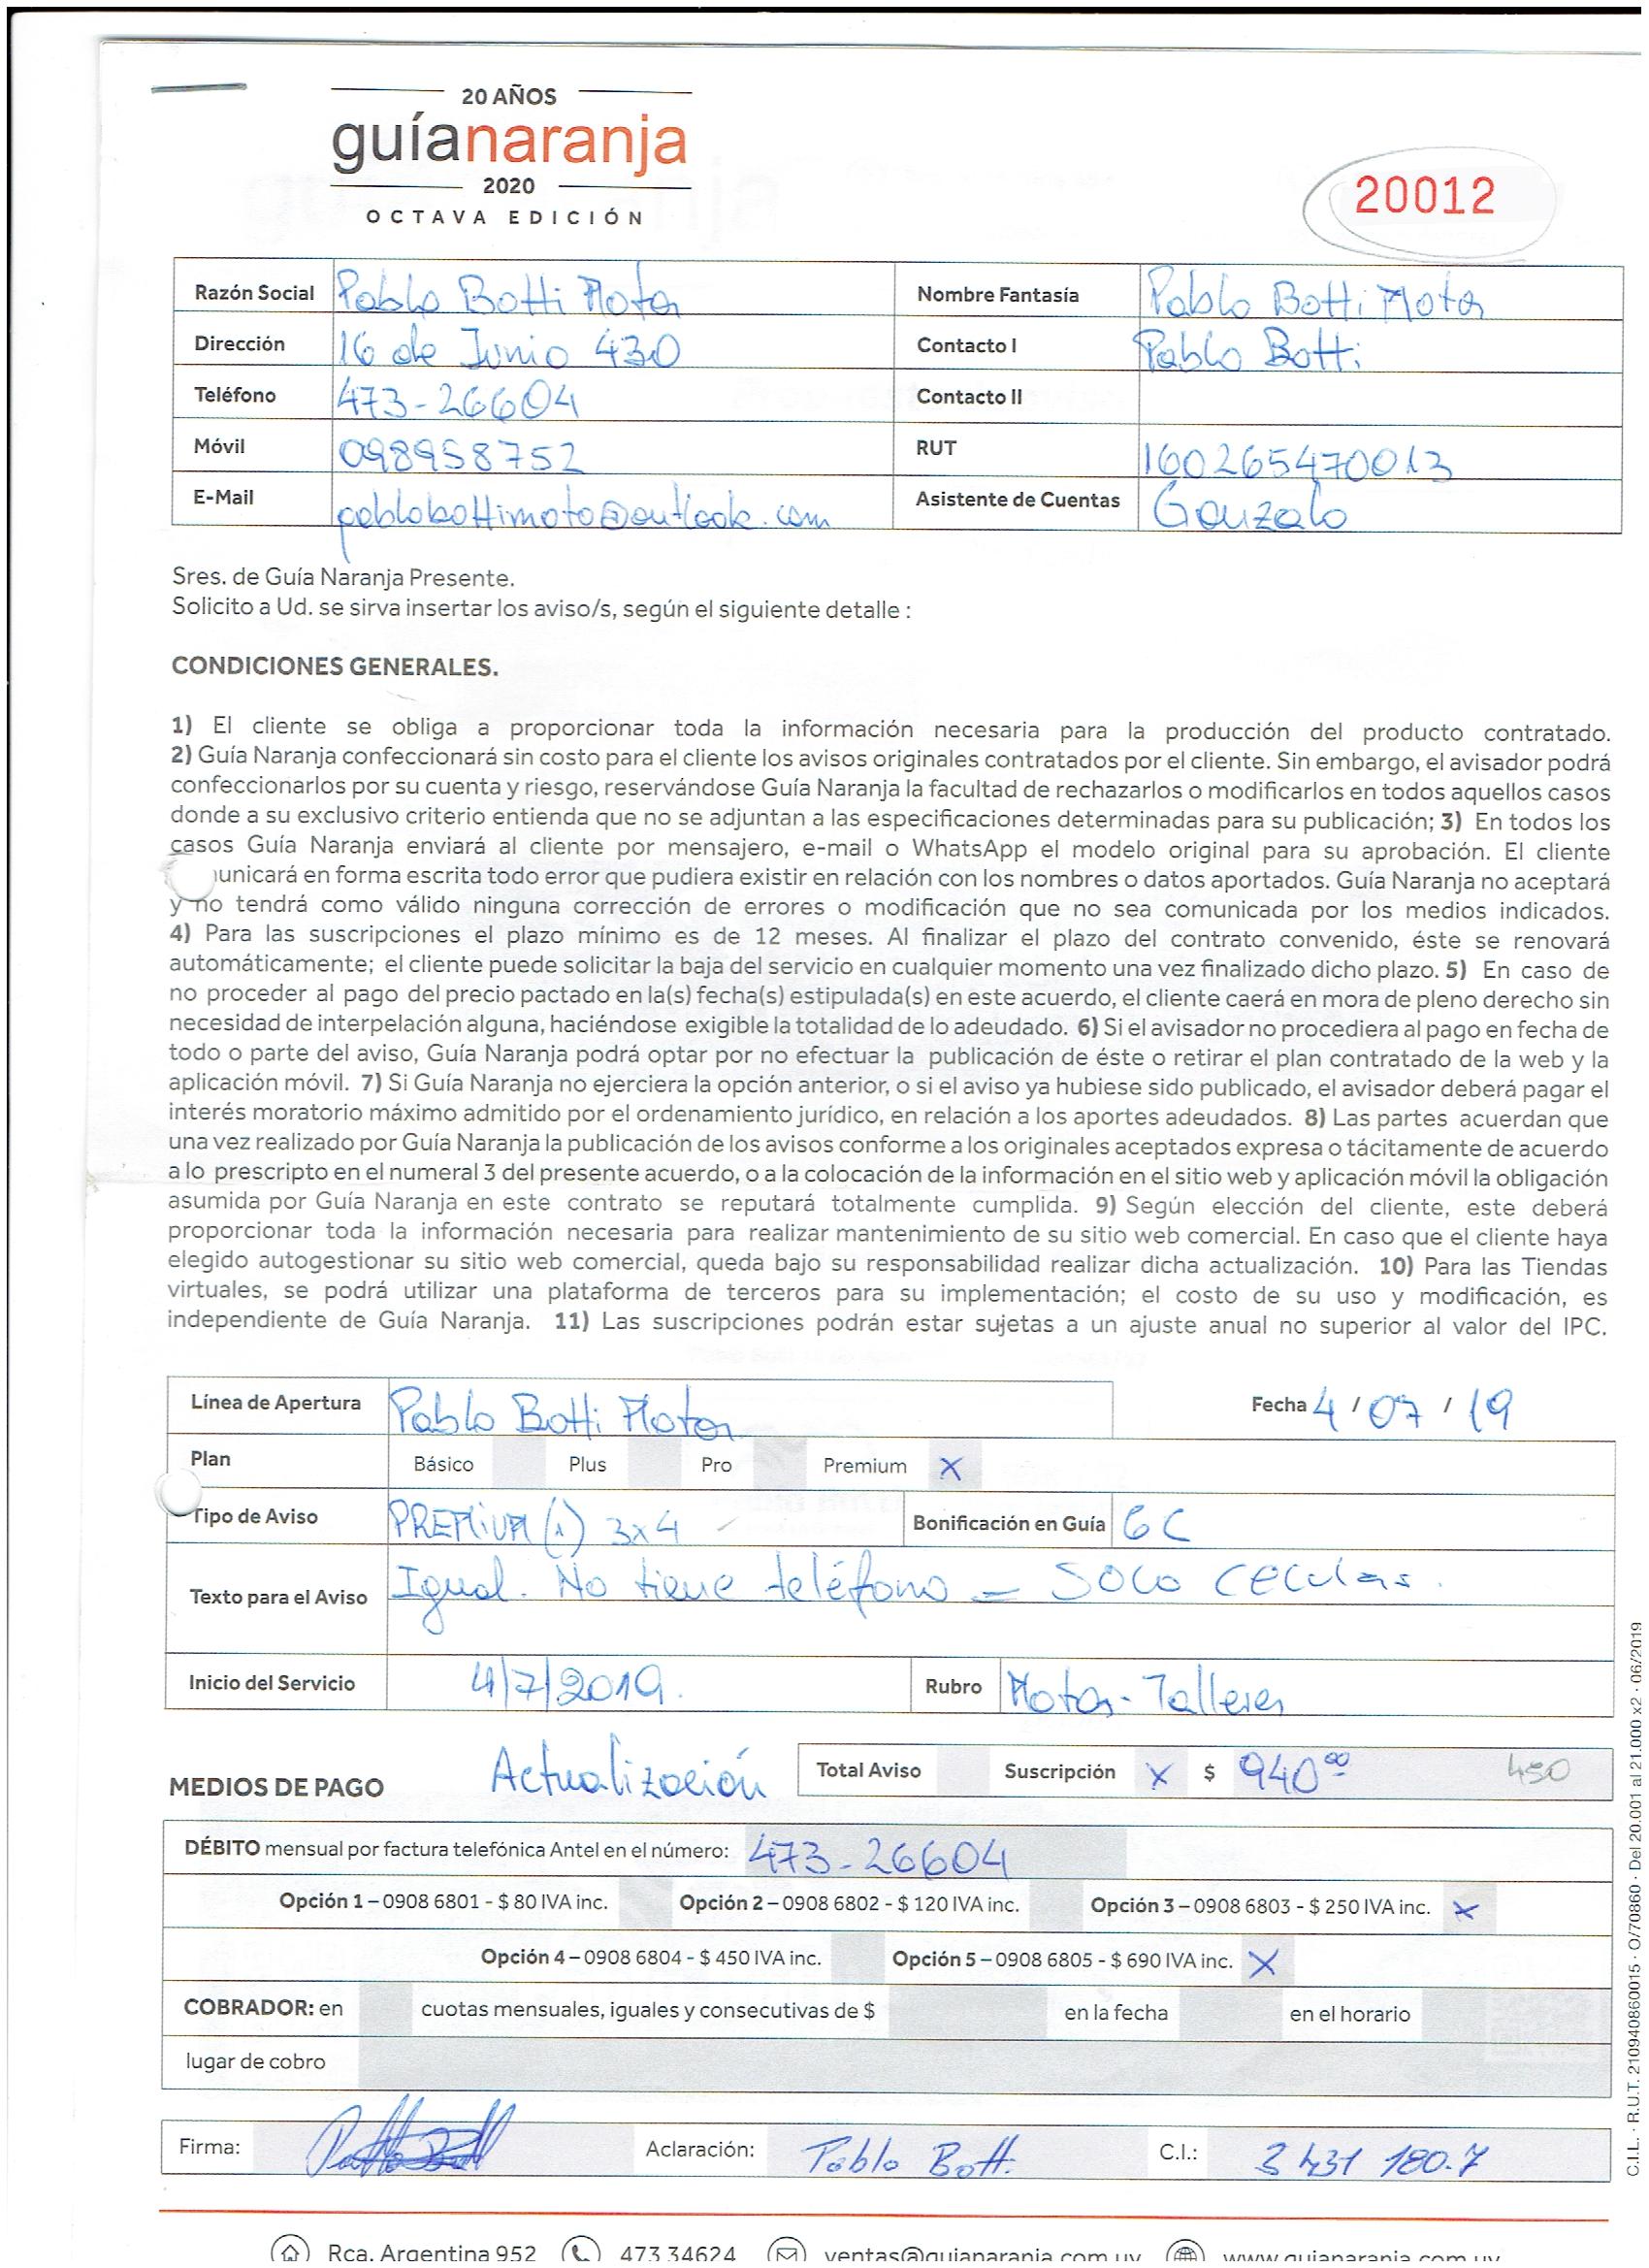 20 AÑOS
guíanaranja
2020
OCTAVA EDICIÓN
20012
Razón Social Pablo Botti Motos Nombre Fantasía Pablo Botti Motos
Dirección 16 de Junio 430 Contacto I Pablo Botti
Teléfono 473-26604 Contacto II
Móvil 098958752 RUT 160265470013
E-Mail pablobottimoto@outlook.com Asistente de Cuentas Gonzalo
Sres. de Guía Naranja Presente.
Solicito a Ud. se sirva insertar los aviso/s, según el siguiente detalle :
CONDICIONES GENERALES.
1) El cliente se obliga a proporcionar toda la información necesaria para la producción del producto contratado.
2) Guía Naranja confeccionará sin costo para el cliente los avisos originales contratados por el cliente. Sin embargo, el avisador podrá
confeccionarlos por su cuenta y riesgo, reservándose Guía Naranja la facultad de rechazarlos o modificarlos en todos aquellos casos
donde a su exclusivo criterio entienda que no se adjuntan a las especificaciones determinadas para su publicación; 3) En todos los
casos Guía Naranja enviará al cliente por mensajero, e-mail o WhatsApp el modelo original para su aprobación. El cliente
unicará en forma escrita todo error que pudiera existir en relación con los nombres o datos aportados. Guía Naranja no aceptará
y no tendrá como válido ninguna corrección de errores o modificación que no sea comunicada por los medios indicados.
4) Para las suscripciones el plazo mínimo es de 12 meses. Al finalizar el plazo del contrato convenido, éste se renovará
automáticamente; el cliente puede solicitar la baja del servicio en cualquier momento una vez finalizado dicho plazo. 5) En caso de
no proceder al pago del precio pactado en la(s) fecha(s) estipulada(s) en este acuerdo, el cliente caerá en mora de pleno derecho sin
necesidad de interpelación alguna, haciéndose exigible la totalidad de lo adeudado. 6) Si el avisador no procediera al pago en fecha de
todo o parte del aviso, Guía Naranja podrá optar por no efectuar la publicación de éste o retirar el plan contratado de la web y la
aplicación móvil. 7) Si Guía Naranja no ejerciera la opción anterior, o si el aviso ya hubiese sido publicado, el avisador deberá pagar el
interés moratorio máximo admitido por el ordenamiento jurídico, en relación a los aportes adeudados. 8) Las partes acuerdan que
una vez realizado por Guía Naranja la publicación de los avisos conforme a los originales aceptados expresa o tácitamente de acuerdo
a lo prescripto en el numeral 3 del presente acuerdo, o a la colocación de la información en el sitio web y aplicación móvil la obligación
asumida por Guía Naranja en este contrato se reputará totalmente cumplida. 9) Según elección del cliente, este deberá
proporcionar toda la información necesaria para realizar mantenimiento de su sitio web comercial. En caso que el cliente haya
elegido autogestionar su sitio web comercial, queda bajo su responsabilidad realizar dicha actualización. 10) Para las Tiendas
virtuales, se podrá utilizar una plataforma de terceros para su implementación; el costo de su uso y modificación, es
independiente de Guía Naranja. 11) Las suscripciones podrán estar sujetas a un ajuste anual no superior al valor del IPC.
Línea de Apertura Pablo Botti Motos Fecha 4 / 07 / 19
Plan Básico Plus Pro Premium X
Tipo de Aviso PREMIUM (1) 3x4 Bonificación en Guía 6C
Texto para el Aviso Igual. No tiene teléfono = SOLO CELULAR.
Inicio del Servicio 4/7/2019. Rubro Motos - Talleres
MEDIOS DE PAGO Actualización Total Aviso Suscripción X $ 940⁰⁰ 450
DÉBITO mensual por factura telefónica Antel en el número: 473-26604
Opción 1 – 0908 6801 - $ 80 IVA inc. Opción 2 – 0908 6802 - $ 120 IVA inc. Opción 3 – 0908 6803 - $ 250 IVA inc. X
Opción 4 – 0908 6804 - $ 450 IVA inc. Opción 5 – 0908 6805 - $ 690 IVA inc. X
COBRADOR: en cuotas mensuales, iguales y consecutivas de $ en la fecha en el horario
lugar de cobro
Firma: Aclaración: Pablo Botti C.I.: 3 431 180.7
Rca. Argentina 952 473 34624 ventas@guianaranja.com.uy www.guianaranja.com.uy
C.I.L. · R.U.T. 210940860015 · O/70860 · Del 20.001 al 21.000 x2 · 06/2019